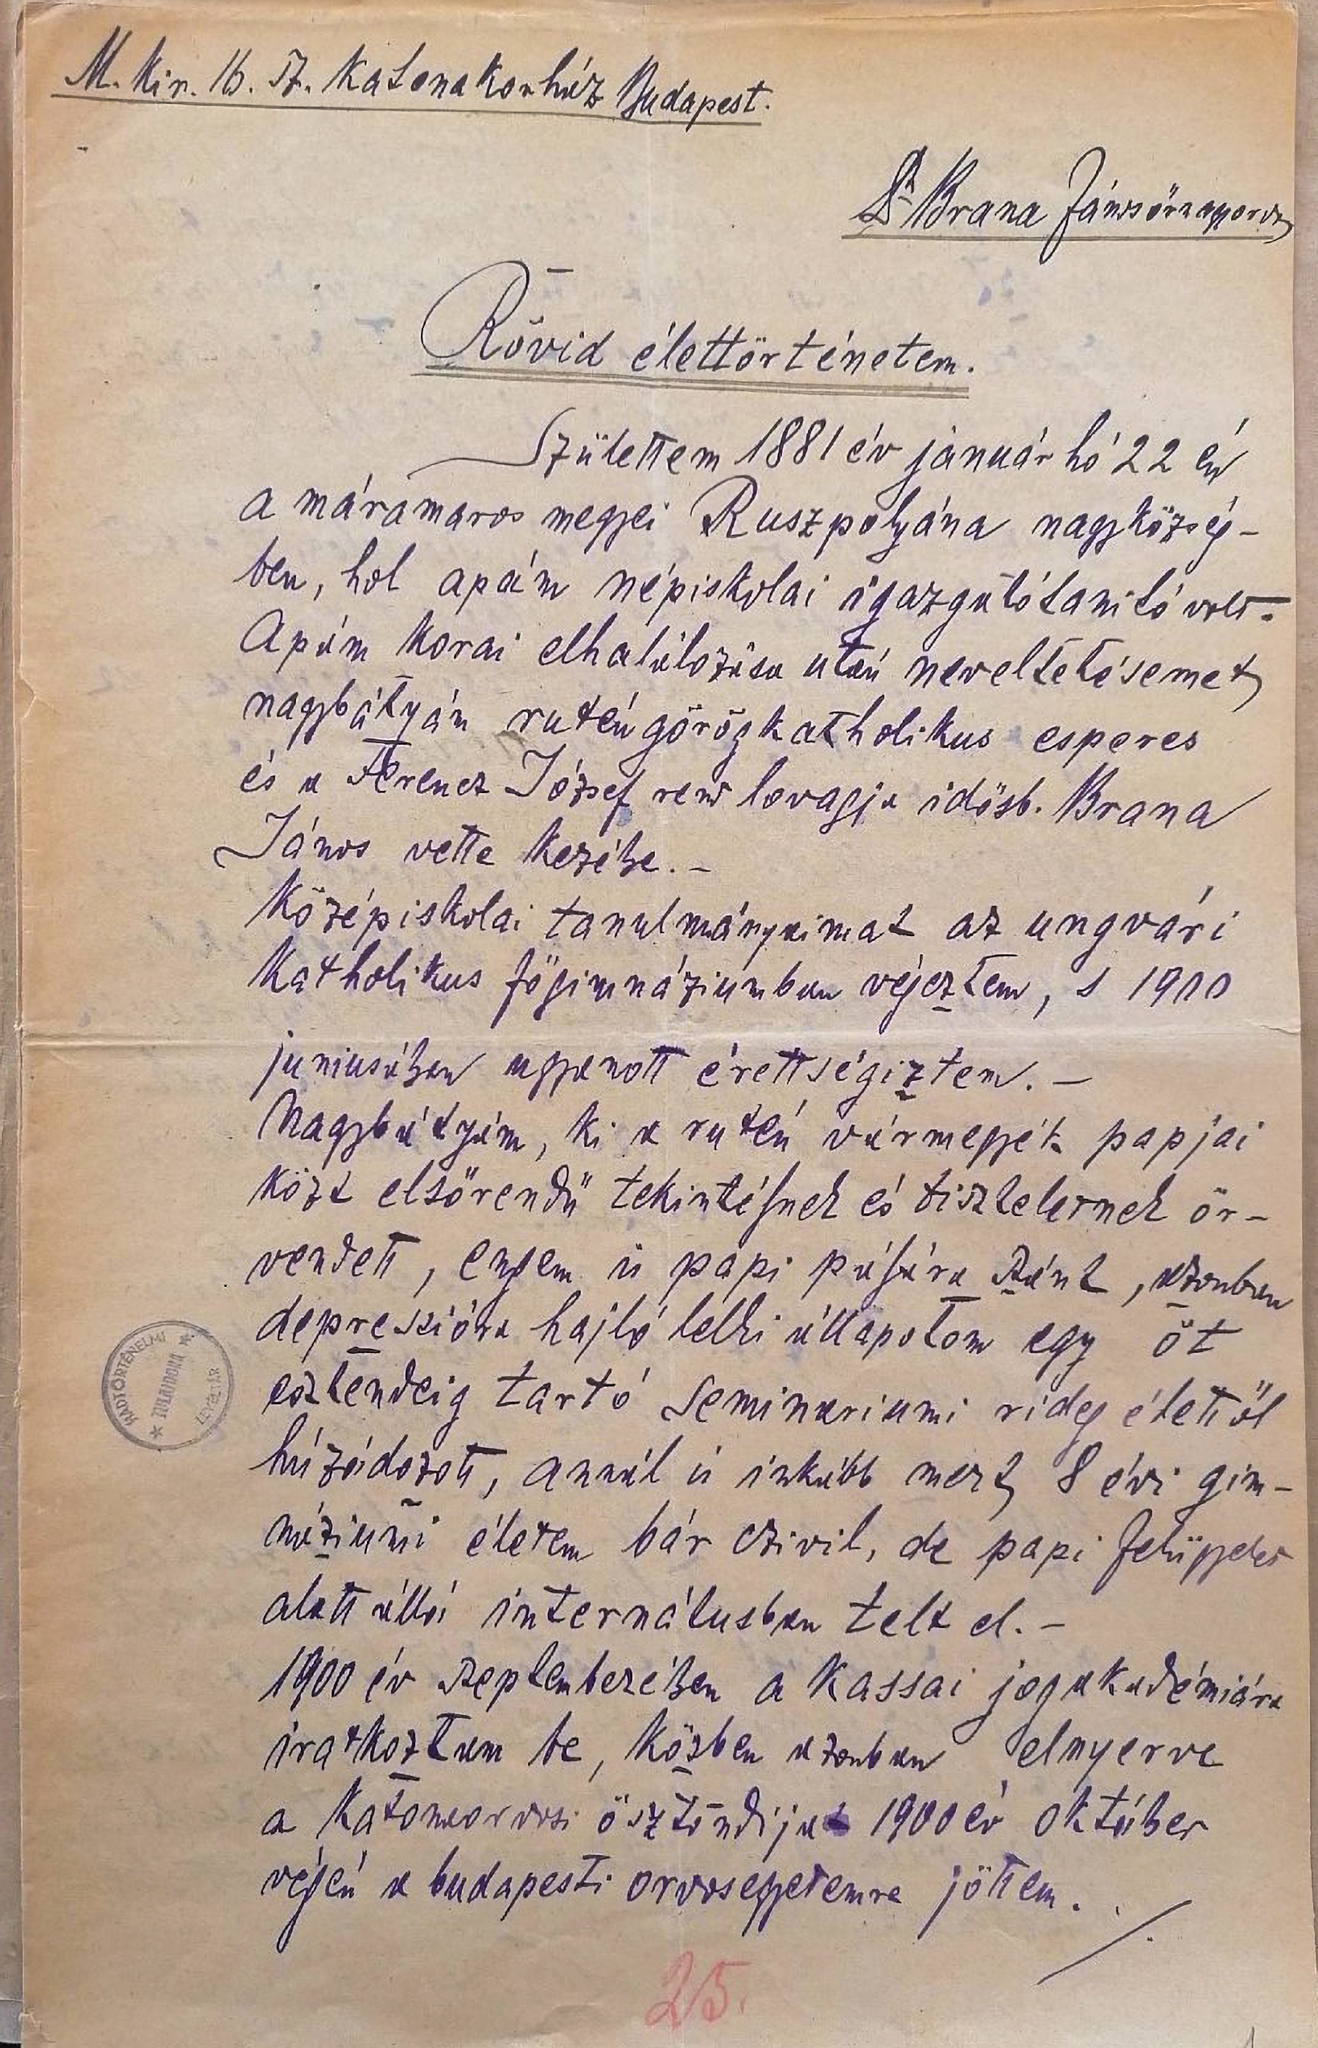 M. kir. 16. sz. katonakorház Budapest.
Dr Brana János őrnagyorvos
Rövid élettörténetem.
Születtem 1881 év január hó 22 én
a máramaros megyei Ruszpolyána nagyközség-
ben, hol apám népiskolai igazgatótanító volt.
Apám korai elhalálozása után neveltetésemet
nagybátyám rutén görögkatholikus esperes
és a Ferencz József rend lovagja idősb. Brana
János vette kezébe.-
Középiskolai tanulmányaimat az ungvári
katholikus főgimnáziumban végeztem, s 1900
juniusában ugyanott érettségiztem.-
Nagybátyám, ki a rutén vármegyék papjai
közt elsőrendű tekintélynek és tiszteletnek ör-
vendett, engem is papi pályára szánt, azonban
depresszióra hajló lelki állapotom egy öt
esztendeig tartó seminariumi rideg élettől
húzódozott, annál is inkább mert 8 évi gim-
náziumi életem bár czivil, de papi felügyelet
alatt álló internátusban telt el.-
1900 év szeptemberében a kassai jogakadémiára
iratkoztam be, közben azonban elnyerve
a katonaorvosi ösztöndíjat 1900 év október
végén a budapesti orvosegyetemre jöttem.
./.
HADTÖRTÉNELMI
LEVÉLTÁR
TULAJDONA
25.